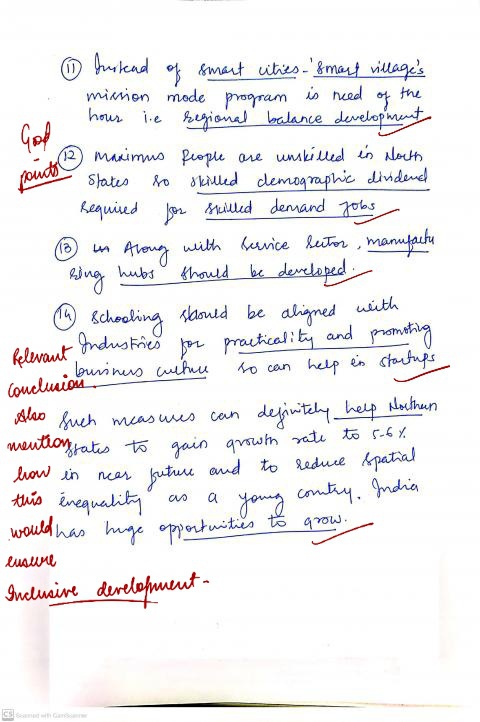 (11) Instead of smart cities - 'Smart village's
mission mode program is need of the
hour i.e regional balance development
Good
points
(12) Maximus People are unskilled in North
States so skilled demographic dividend
required for skilled demand jobs
(13) Along with Service Sector, manufactu
ring hubs should be developed.
(14) Schooling should be aligned with
Industries for practicality and promoting
business culture so can help in startups
Relevant
conclusion.
Also
mention
how
this
would
ensure
Inclusive development -
Such measures can definitely help Northern
States to gain growth rate to 5-6%
in near future and to reduce spatial
inequality as a young country. India
has huge opportunities to grow.
CS Scanned with CamScanner